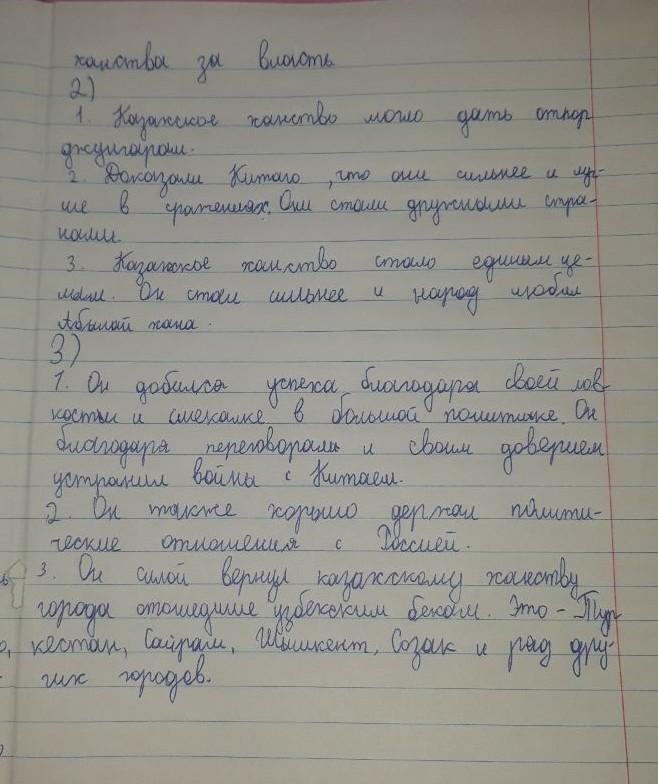 ханства за власть
2)
1. Казахское ханство могло дать отпор
джунгарам.
2. Доказали Китаю, что они сильнее и луч-
ше в сражениях. Они стали дружными стра-
нами.
3. Казахское ханство стало единым це-
лым. Он стал сильнее и народ любил
Абылай хана.
3)
1. Он добился успеха благодаря своей лов-
костьи и смекалке в большой политике. Он
благодаря переговорам и своим доверием
устранил войны с Китаем.
2. Он также хорошо держал полити-
ческие отношения с Россией.
3. Он силой вернул казахскому ханству
города отошедшие узбекским бекам. Это - Тур
кестан, Сайрам, Шышкент, Созак и ряд дру-
гих городов.